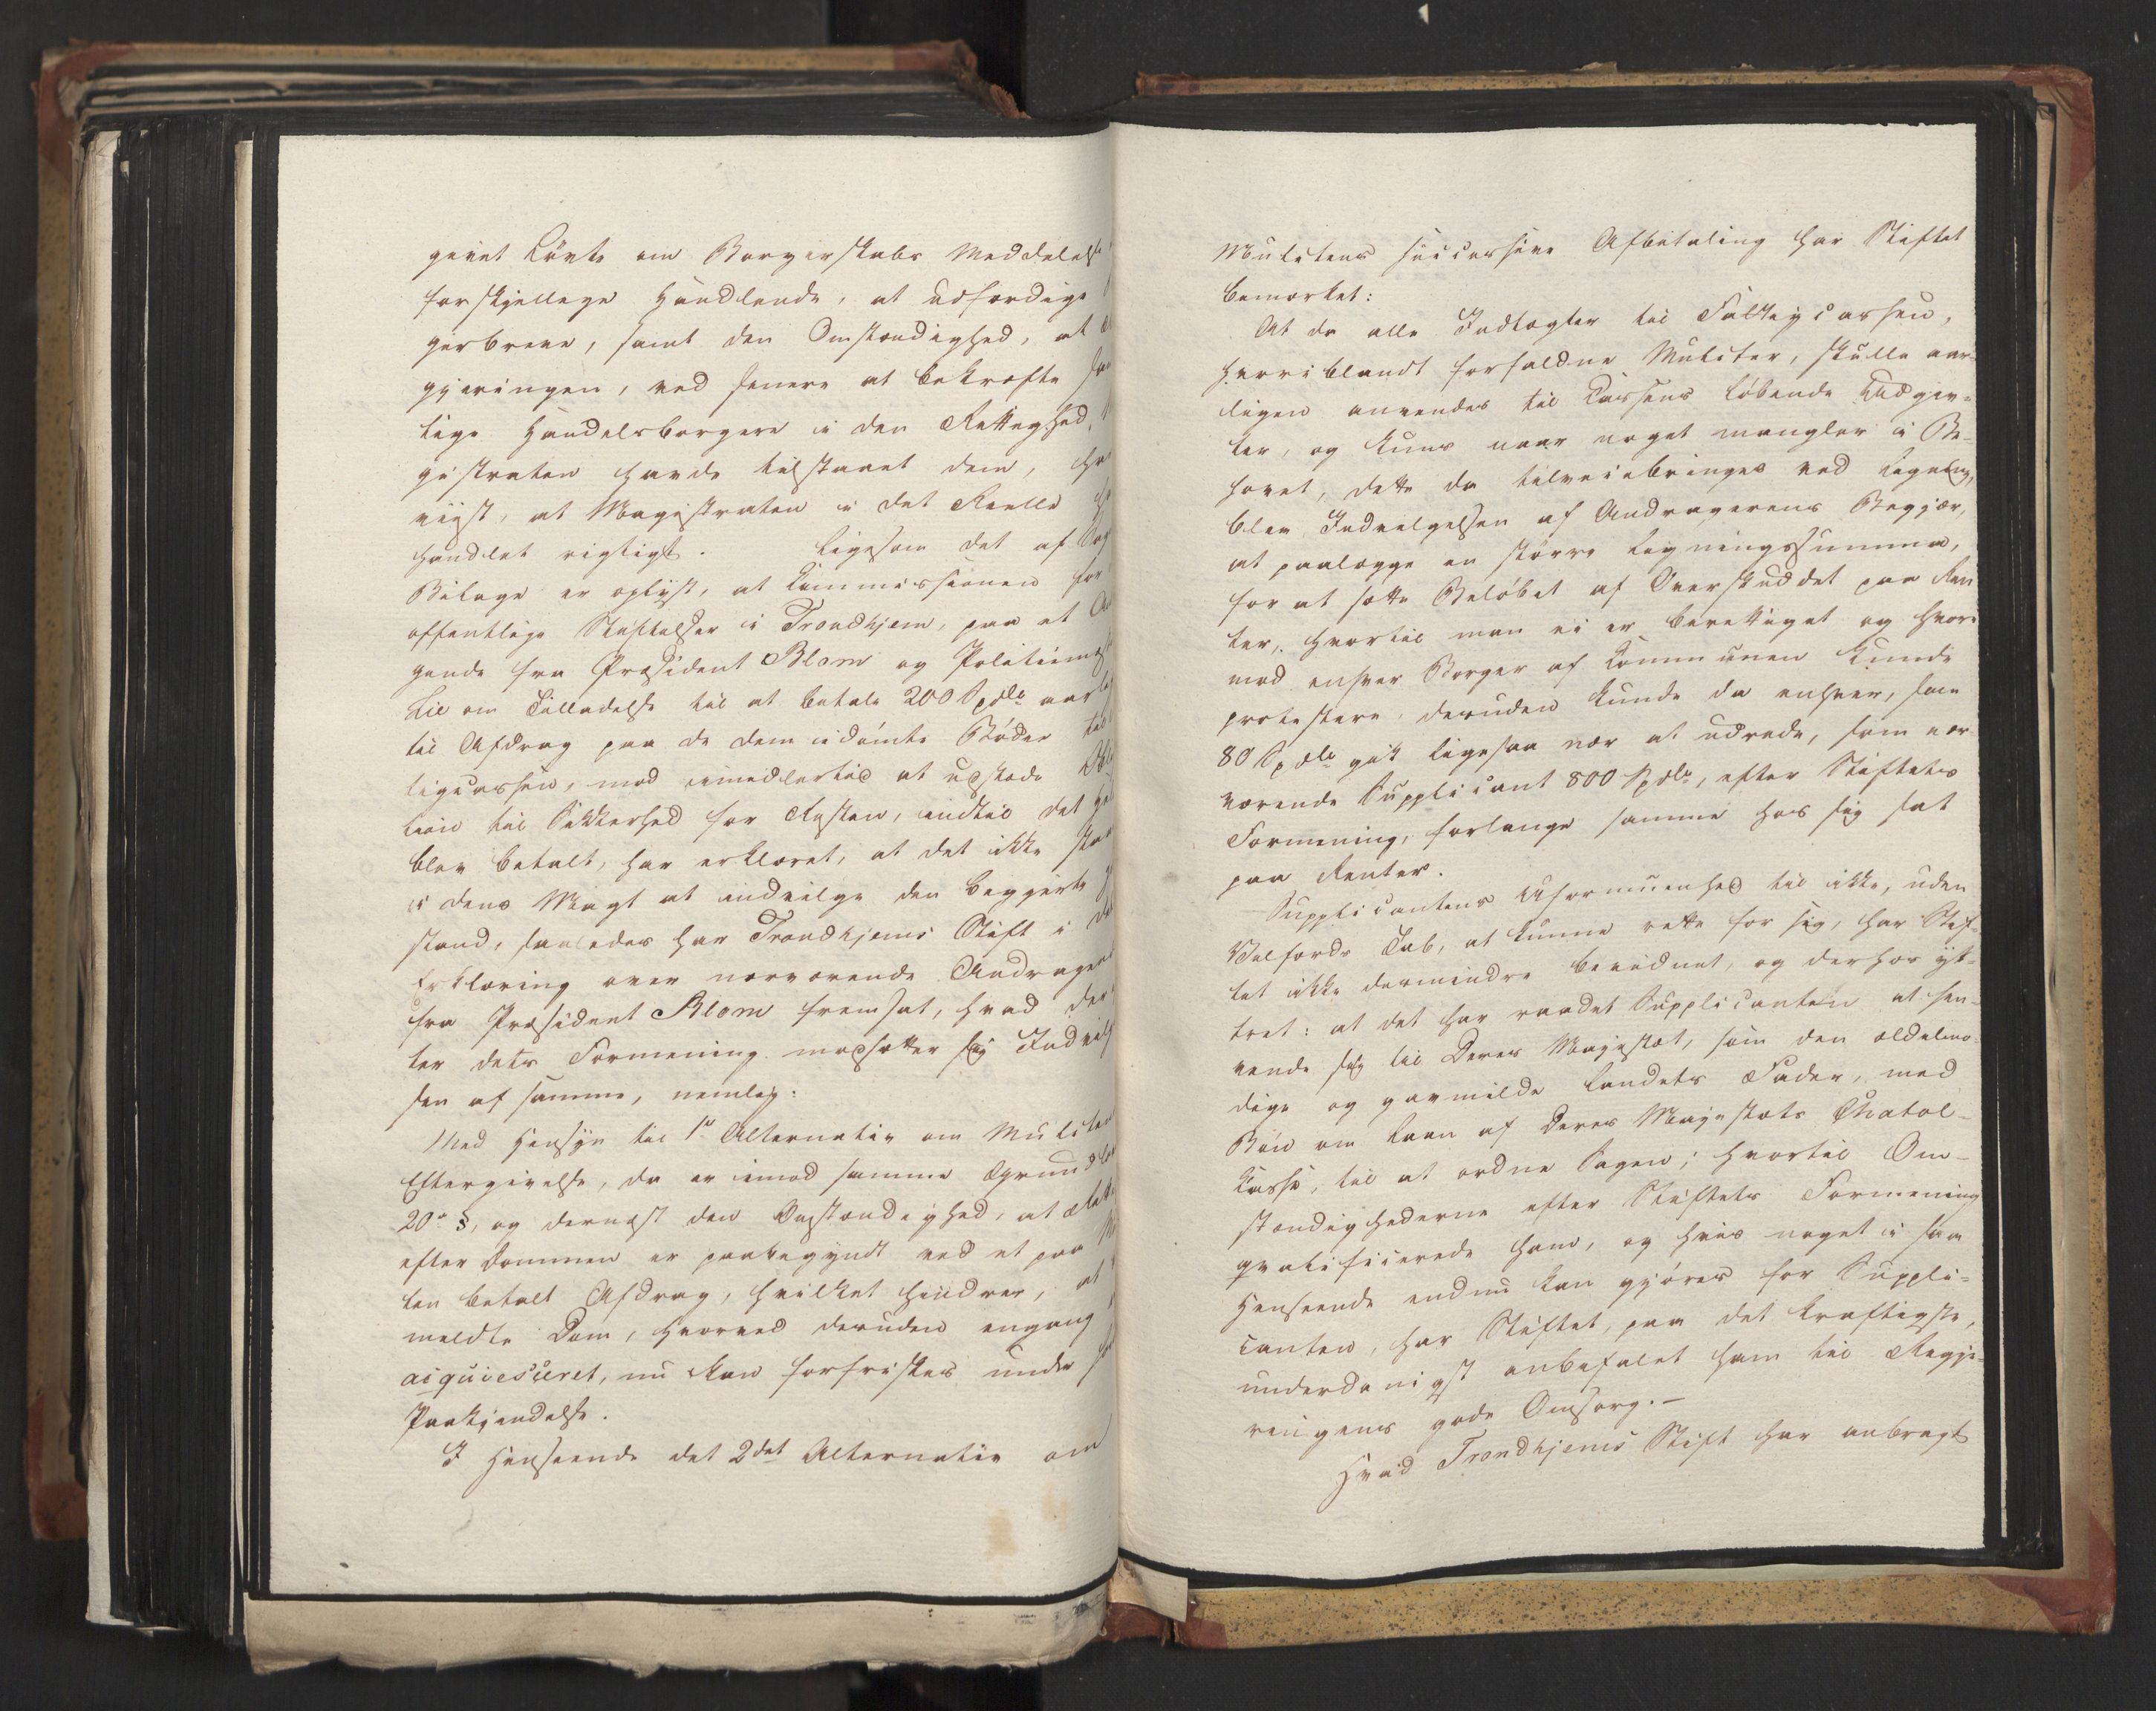 givet Løvte om Borgerskabs Meddelelse
forskjellige Handlende, at udfærdige
gerbreve, samt den Omstændighed, at
gjeringen, ved senere at bekræfte
lige Handelsborgere i den Rettighed,
gistraten havde tilstaaet dem, har
viist, at Magistraten i det Reelle
handlet rigtigt. Ligesom det af
Bilage er oplyst, at Commissionen for
offentlige Stiftelser i Trondhjem, paa et
gende fra Præsident Blom og Politiemest
Lie om Tilladelse til at betale 200 Spdlr aarlig
til Afdrag paa de dem idømte Bøder til
tigcassen, mod imidlertid at udstæde
tion til Sikkerhed for Resten, indtil det
blev betalt, har erklæret, at det ikke staar
i dens Magt at indvilge den begjerte
stand, saaledes har Trondhjems Stift i
Erklæring over nærværende Andragende
fra Præsident Blom fremsat, hvad der
ter dets Formening modsætter sig Indvilgel
sen af samme, nemlig:
Med Hensyn til 1ste Alternativ om Mulcten
Eftergivelse, da er imod samme Grundlov
20de §, og dernæst den Omstændighed, at
efter Dommen er paabegyndt ved et paa
ten betalt Afdrag, hvilket hindrer, at
meldte Dom, hvorved desuden engang
acquiesceret, nu kan forfriskes under
Paakjendelse.
I Henseende det 2det Alternativ om
Mulctens successive Afbetaling har Stiftet
bemærket:
At da alle Indtægter til Fattigcassen,
hvoriblandt forfaldne Mulcter, skulle aar-
ligen anvendes til Cassens løbende Udgiv-
ter, og kuns naar noget mangler i Be-
hovet, dette da tilveiebringes ved Ligning,
blev Indvilgelsen af Andragerens Begjær,
at paalægge en større Ligningssumma,
for at sætte Beløbet af Overskuddet paa Ren
ter, hvortil man ei er berettiget og hvori
mod enhver Borger af Communen kunde
protestere. desuden kunde da enhver, som
80 Spdlr gik ligesaa nær at udrede, som nær-
værende Supplicant 800 Spdlr, efter Stiftets
Formening, forlange samme hos sig sat
paa Renter.
Supplicantens Uformuenhed til ikke, uden
Velfærds Tab, at kunne rette for sig, har Stif-
tet ikke desmindre bevidnet, og derhos yt-
tret: at det har raadet Supplicanten at hen-
vende sig til Deres Majestæt, som den ædelmo-
dige og gavmilde Landets Fader, med
Bøn om Laan af Deres Majestæts Chatol-
Casse, til at ordne Sagen; hvortil Om-
stændighederne efter Stiftets Formening
qvalificerede ham, og hvis noget i saa
Henseende endnu kan gjøres for Suppli-
canten, har Stiftet, paa det kraftigste,
underdanigst anbefalet ham til Regje-
ringens gode Omsorg.-
Hvad Trondhjems Stift har anbragt